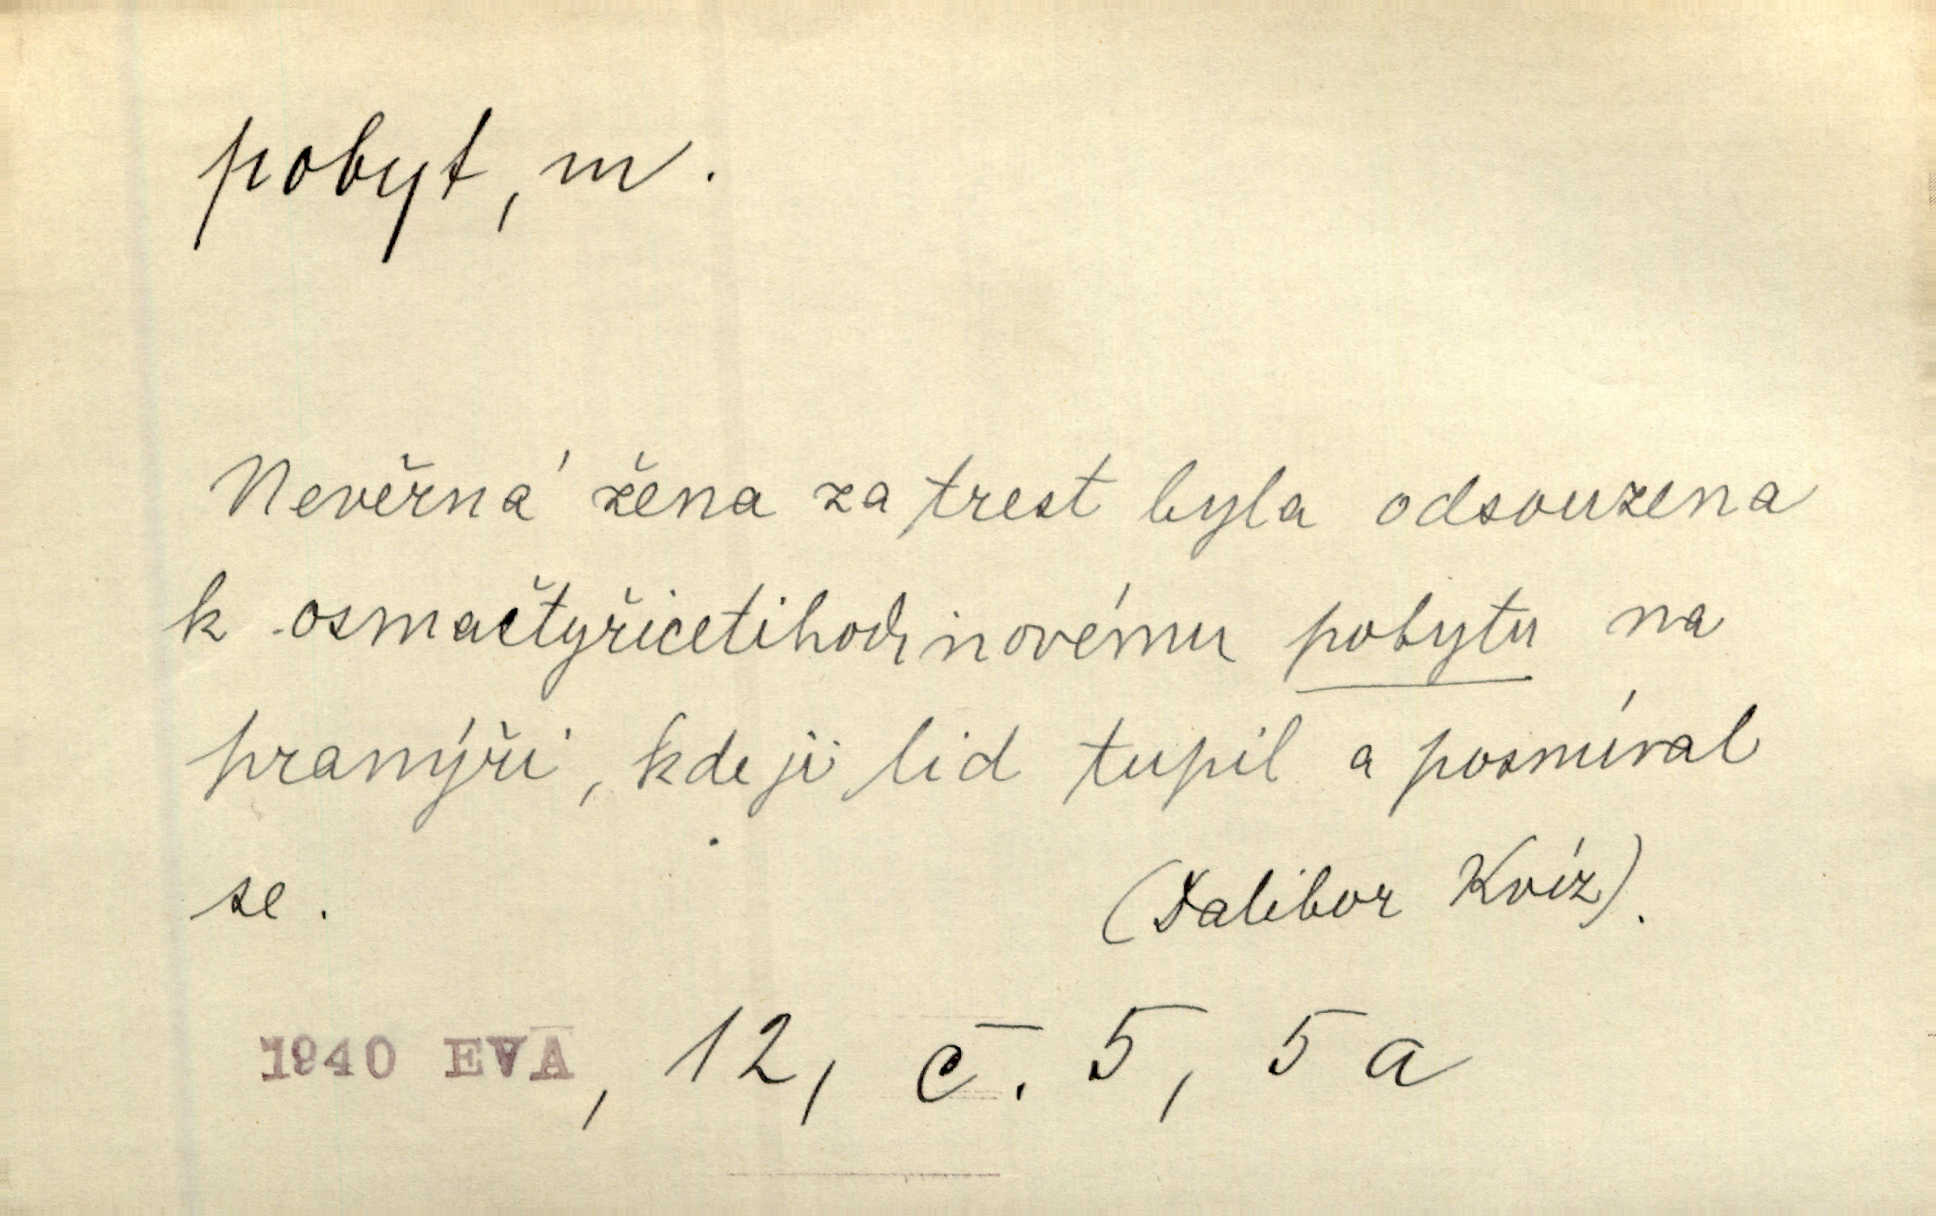 pobyt, m.
Nevěrná žena za trest byla odsouzena
k osmačtyřicetihodinovému pobytu na
pranýři, kde ji lid tupil a posmíval
se.
(Dalibor Kvíz).
1940 EVA, 12, č. 5, 5 a